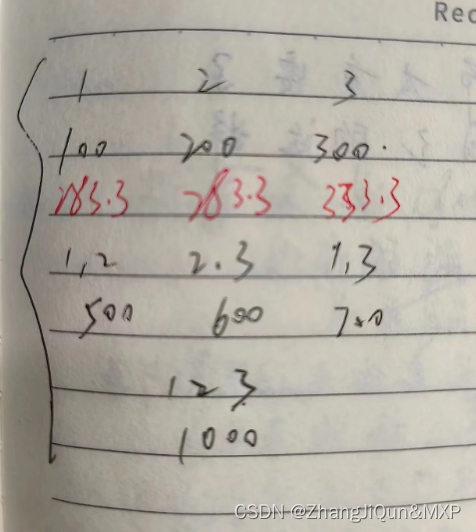 Rec
1 2 3
100 200 300.
283.3 283.3
1,2 2.3 1,3
500 600 700
1 2 3
1000
CSDN @ZhangJiQun&MXP